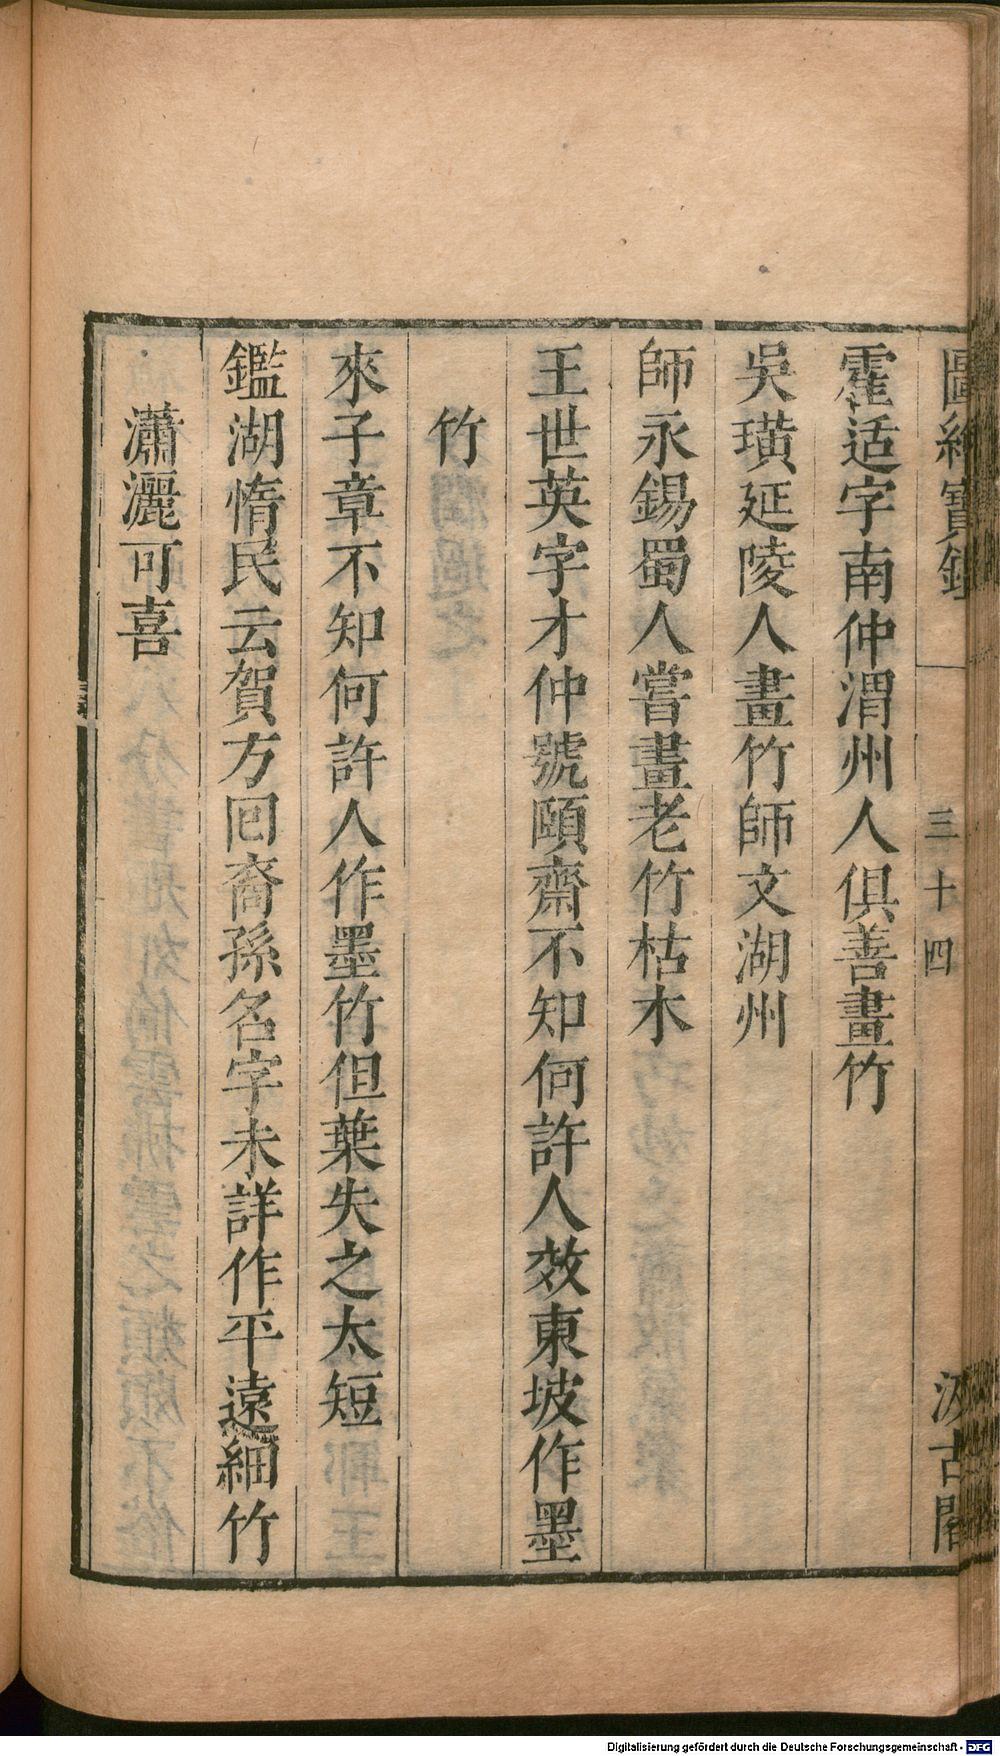 圖繪寶鑑
三十四
汲古閣
霍适字南仲渭州人俱善畫竹
吳璜延陵人畫竹師文湖州
師永錫蜀人嘗畫老竹枯木
王世英字才仲號頤齋不知何許人效東坡作墨
竹
來子章不知何許人作墨竹但葉失之太短
鑑湖惰民云賀方回裔孫名字未詳作平遠細竹
瀟灑可喜
Digitalisierung gefördert durch die Deutsche Forschungsgemeinschaft - DFG